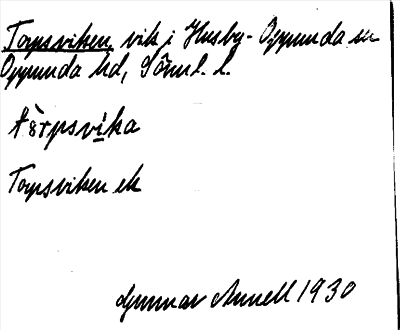 Torpsviken vik i Husby-Oppunda sn
Oppunda hd, Sörml. l.
tår̀psvi̱ka
Torpsviken ek
Gunnar Annell 1930